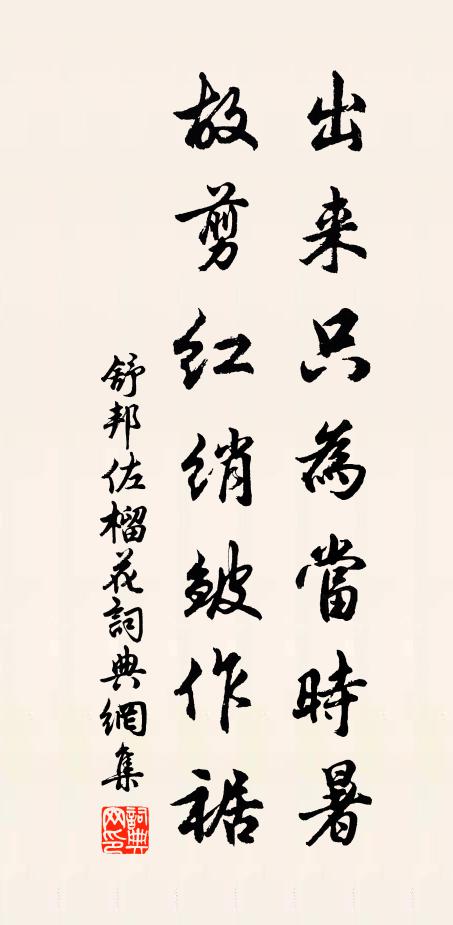 出来只為當時暑
故剪紅綃皺作裾
舒邦佐榴花詞典網集
詞典網印